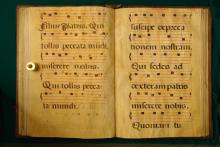 Filius Patris. Qui
tollis peccata mundi,
miserere nobis.
Qui tollis pecca-
ta mundi.
suscipe depreca
nonem nostram.
Qui sedes ad
dexteram patris
miserere nobis.
Quoniam tu